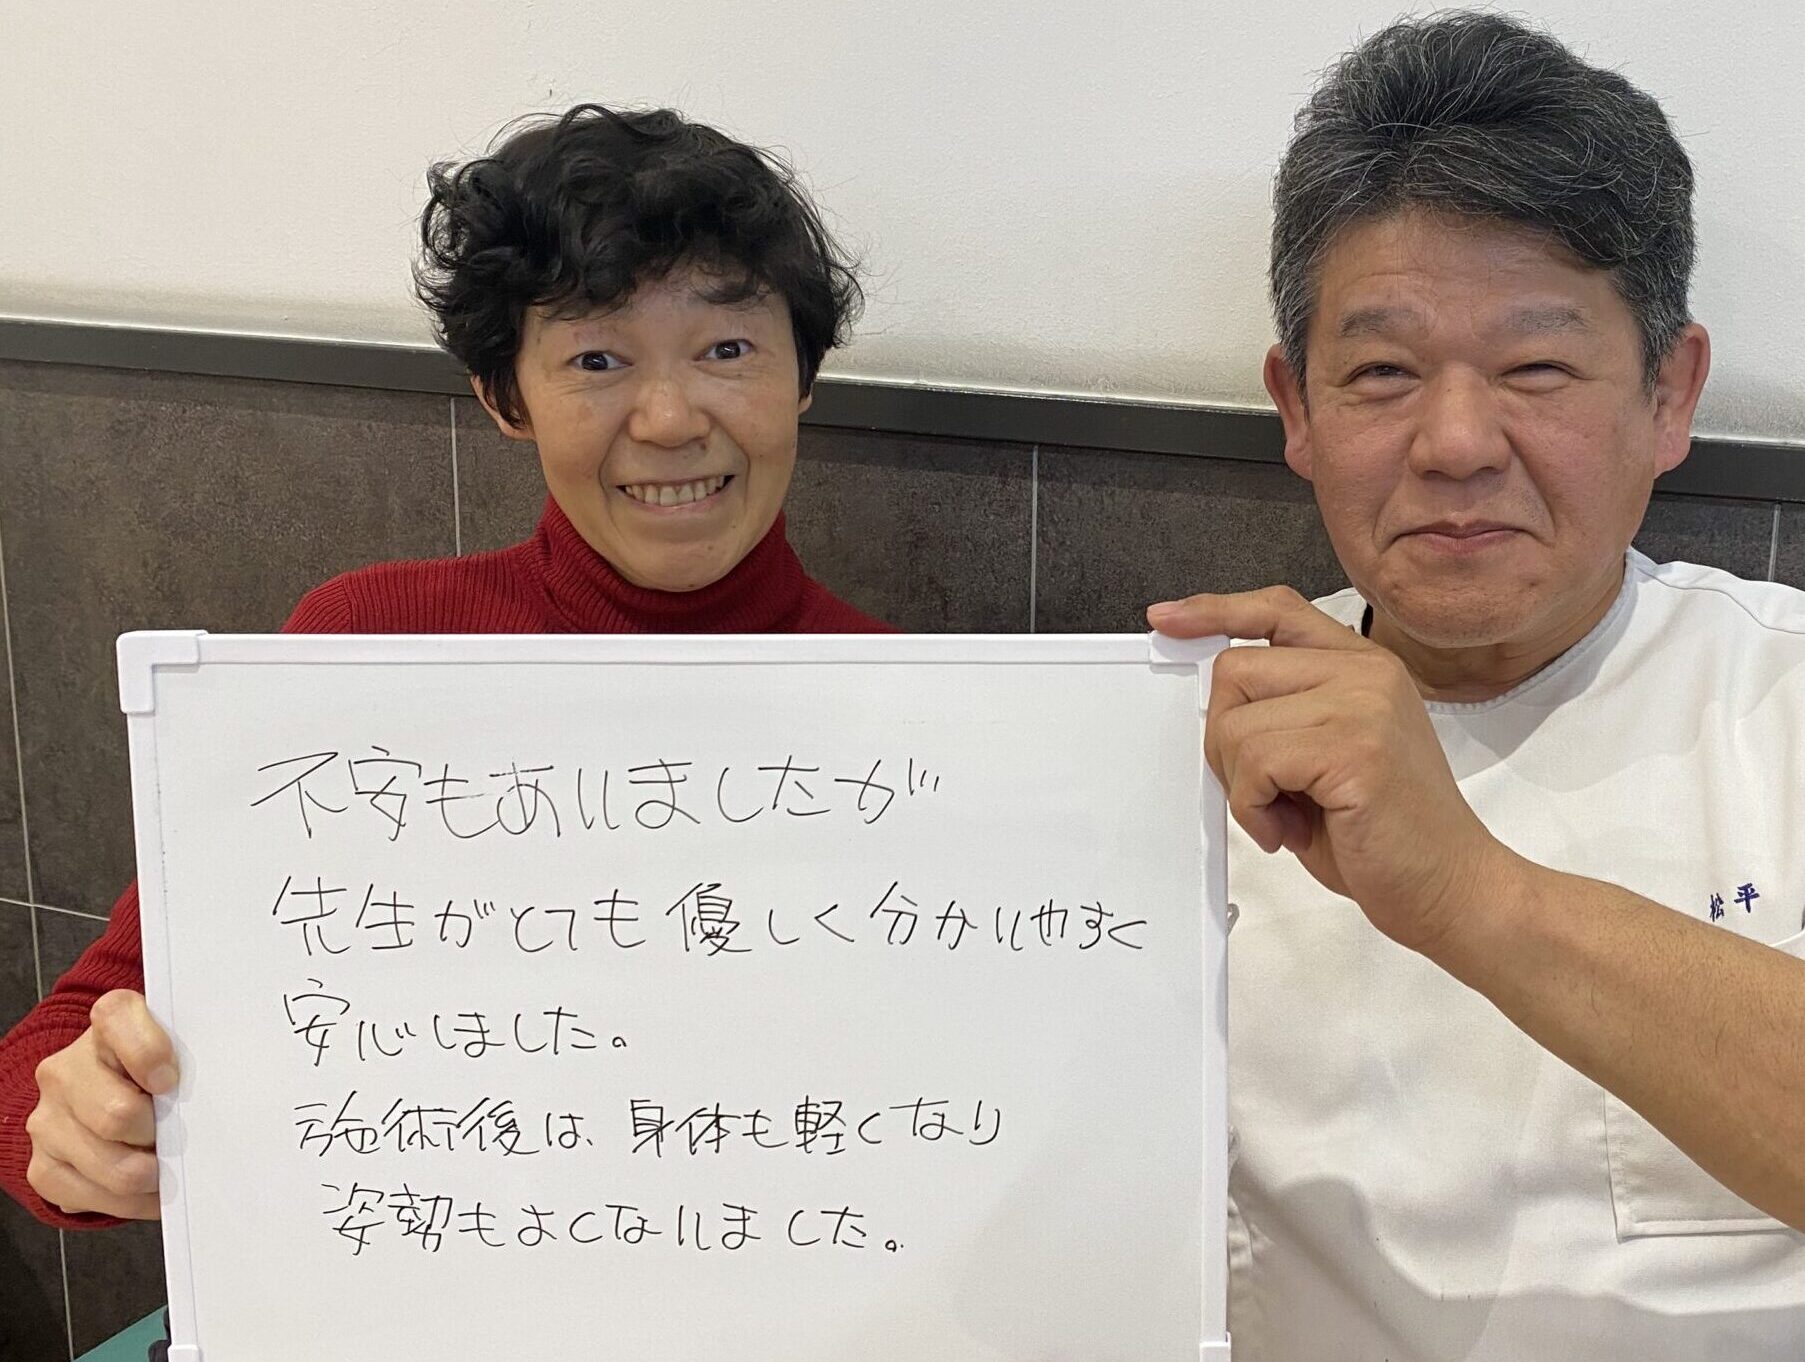 不安もありましたが
先生がとても優しく分かりやすく
安心しました。
施術後は、身体も軽くなり
姿勢もよくなりました。
松平